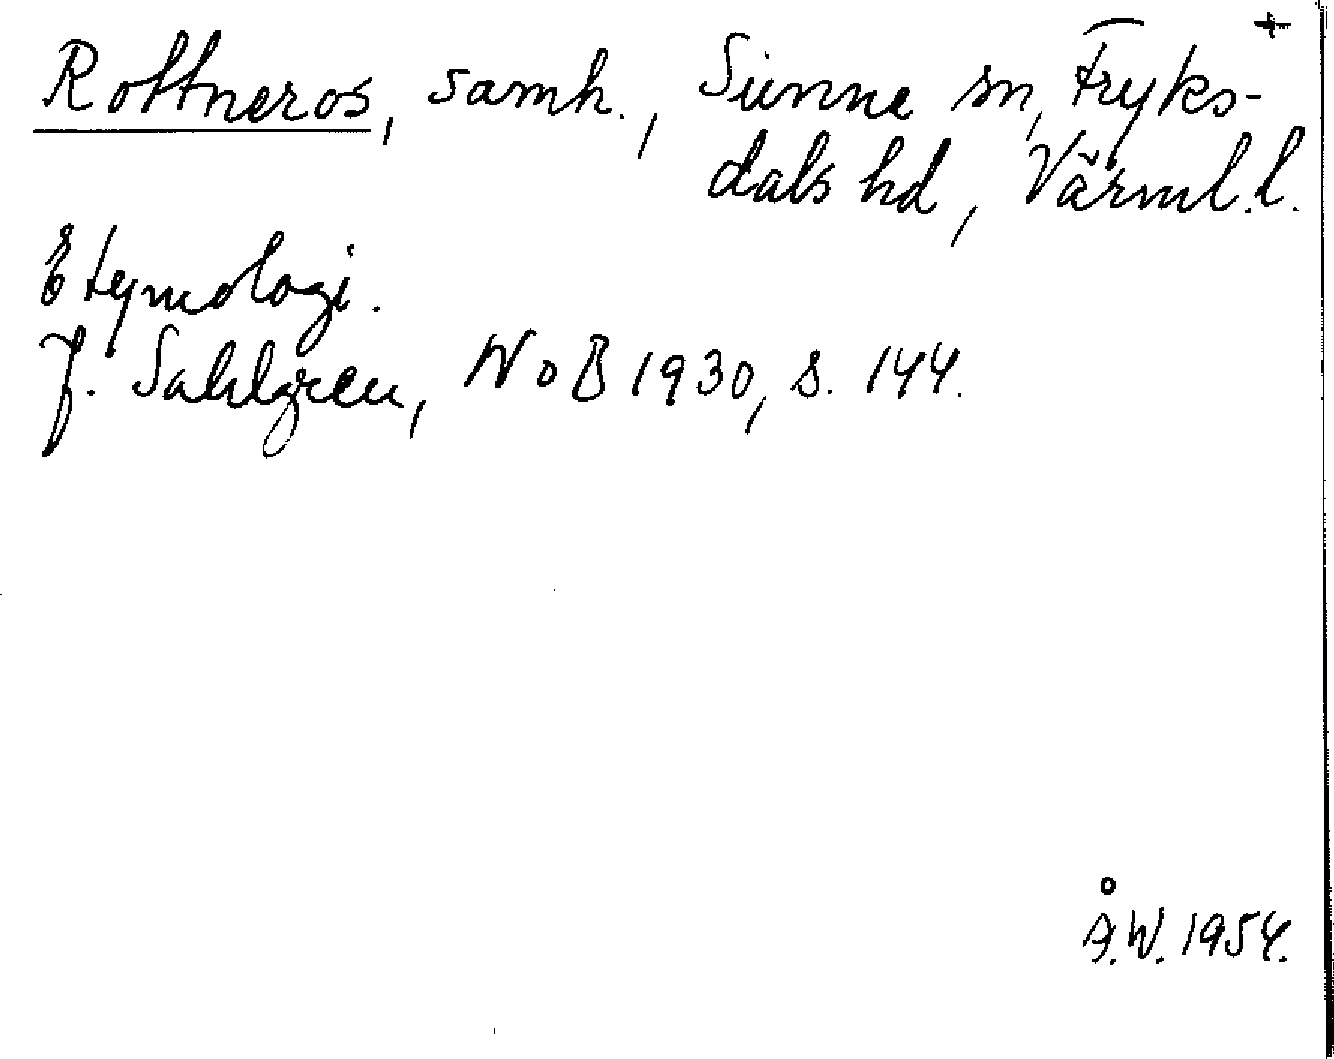 Rottneros, samh., Sunne sn, Fryks-
dals hd, Värml.l.
Etymologi.
J. Sahlgren, NoB 1930, s. 144.
Å.W. 1954.